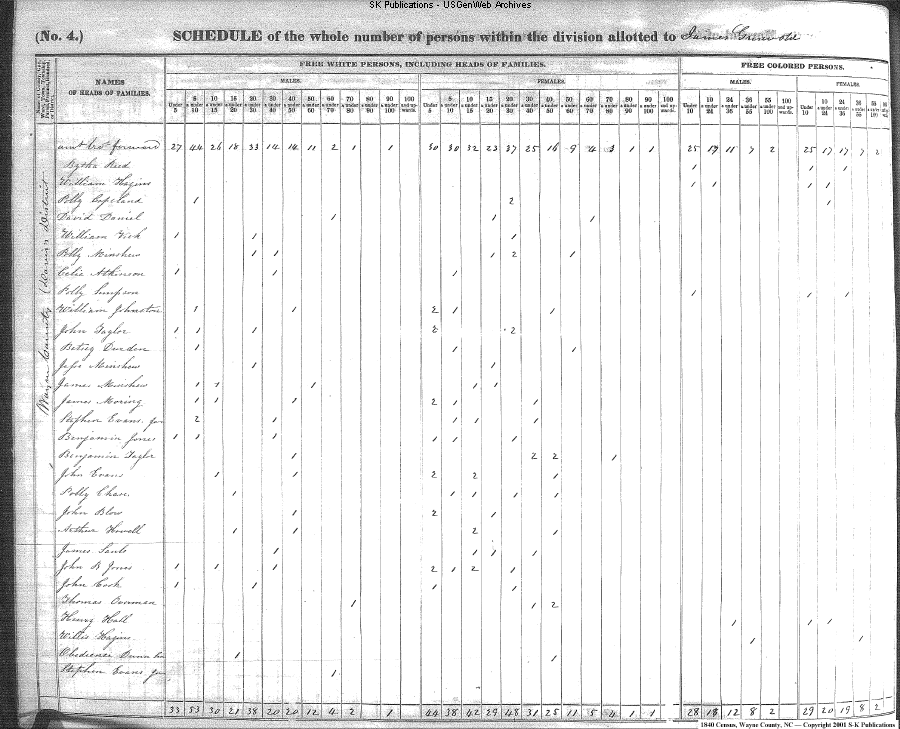 SK Publications - USGenWeb Archives
(No. 4.) SCHEDULE of the whole number of persons within the division allotted to James
FREE WHITE PERSONS, INCLUDING HEADS OF FAMILIES. FREE COLORED PERSONS.
NAMES OF HEADS OF FAMILIES. MALES. FEMALES. MALES. FEMALES.
Under 5 5 & under 10 10 & under 15 15 & under 20 20 & under 30 30 & under 40 40 & under 50 50 & under 60 60 & under 70 70 & under 80 80 & under 90 90 & under 100 100 and upwards. Under 5 5 & under 10 10 & under 15 15 & under 20 20 & under 30 30 & under 40 40 & under 50 50 & under 60 60 & under 70 70 & under 80 80 & under 90 90 & under 100 100 and upwards. Under 10 10 & under 24 24 & under 36 36 & under 55 55 & under 100 100 and upwards. Under 10 10 & under 24 24 & under 36 36 & under 55 55 & under 100
Wayne County Davis District
amt brot forward 27 44 26 18 33 14 14 11 2 1 1 30 30 32 23 37 25 16 9 4 3 1 1 25 17 11 7 2 25 17 17 7 2
Reed 1 1 1
William Hagins 1 1 1 1
Polly Copeland 1 2 1
David Daniel 1 1 1
William 1 1 1
Polly Minshew 1 1 1 2 1
Celia Atkinson 1 1 1
Polly Simpson 1 1 1
William Johnston 1 1 2 1 1
John Taylor 1 1 1 2 2
Betsey Durden 1 1 1
Jesse Minshew 1 1
James Minshew 1 1 1 1 1
James Moring 1 1 1 2 1 1
Stephen Evans 2 1 1 1 1
Benjamin Jones 1 1 1 1 1 1
Benjamin Taylor 1 2 2 1
John Evans 1 1 2 2 1
Polly Chase 1 1 1 1 1
John Blow 1 2 1
Arthur Howell 1 1 2 1
James 1 1 1 1
John R Jones 1 1 1 2 1 2 1
John Cook 1 1 1 1
Thomas Overman 1 1 2
Henry Hall 1 1 1
Willis Hagins 1 1
Obedience Dunn 1 1
Stephen Evans 1
33 53 30 21 38 20 20 12 4 2 1 44 38 42 29 48 31 25 11 5 4 1 1 28 18 12 8 2 29 20 19 8 2
1840 Census, Wayne County, NC — Copyright 2001 S-K Publications